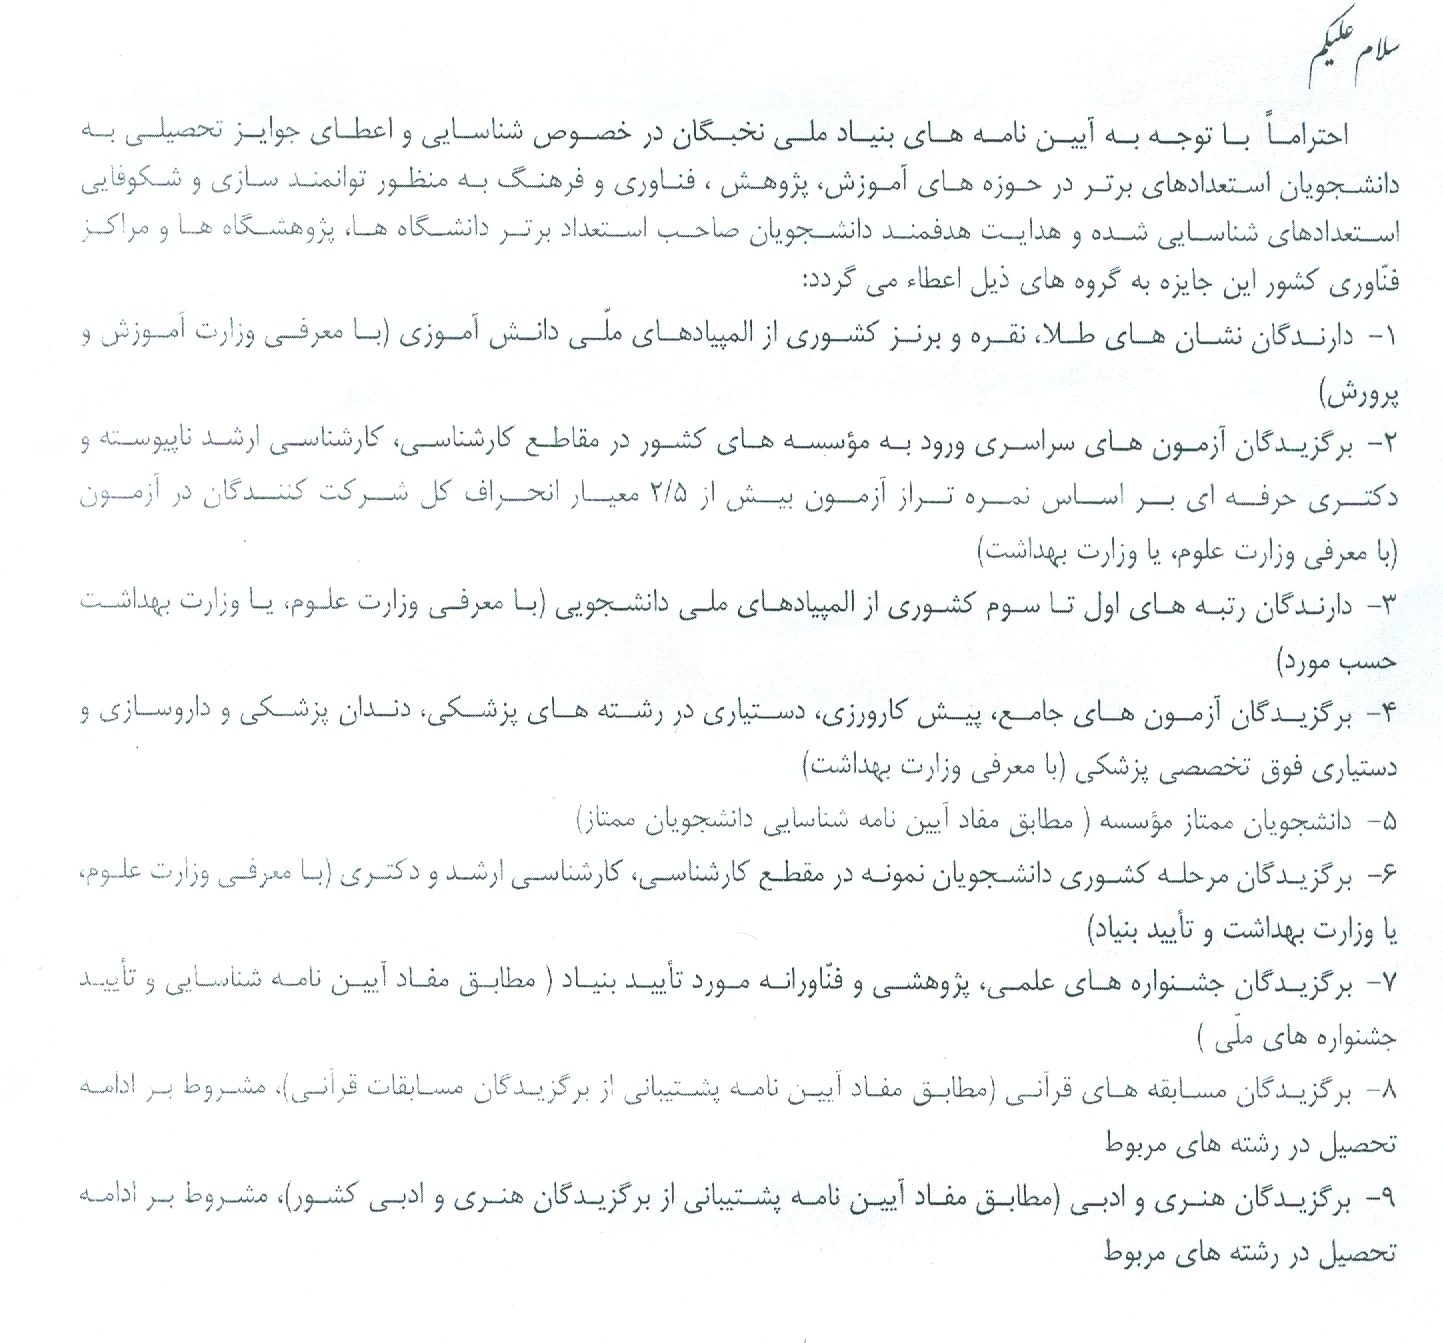 سلام علیکم
احتراماً با توجه به آیین نامه های بنیاد ملی نخبگان در خصوص شناسایی و اعطای جوایز تحصیلی به
دانشجویان استعدادهای برتر در حوزه های آموزش، پژوهش ، فناوری و فرهنگ به منظور توانمند سازی و شکوفایی
استعدادهای شناسایی شده و هدایت هدفمند دانشجویان صاحب استعداد برتر دانشگاه ها، پژوهشگاه ها و مراکز
فنّاوری کشور این جایزه به گروه های ذیل اعطاء می گردد:
۱- دارندگان نشان های طلا، نقره و برنز کشوری از المپیادهای ملّی دانش آموزی (با معرفی وزارت آموزش و
پرورش)
۲- برگزیدگان آزمون های سراسری ورود به مؤسسه های کشور در مقاطع کارشناسی، کارشناسی ارشد ناپیوسته و
دکتری حرفه ای بر اساس نمره تراز آزمون بیش از ۲/۵ معیار انحراف کل شرکت کنندگان در آزمون
(با معرفی وزارت علوم، یا وزارت بهداشت)
۳- دارندگان رتبه های اول تا سوم کشوری از المپیادهای ملی دانشجویی (با معرفی وزارت علوم، یا وزارت بهداشت
حسب مورد)
۴- برگزیدگان آزمون های جامع، پیش کارورزی، دستیاری در رشته های پزشکی، دندان پزشکی و داروسازی و
دستیاری فوق تخصصی پزشکی (با معرفی وزارت بهداشت)
۵- دانشجویان ممتاز مؤسسه ( مطابق مفاد آیین نامه شناسایی دانشجویان ممتاز)
۶- برگزیدگان مرحله کشوری دانشجویان نمونه در مقطع کارشناسی، کارشناسی ارشد و دکتری (با معرفی وزارت علوم،
یا وزارت بهداشت و تأیید بنیاد)
۷- برگزیدگان جشنواره های علمی، پژوهشی و فنّاورانه مورد تأیید بنیاد ( مطابق مفاد آیین نامه شناسایی و تأیید
جشنواره های ملّی )
۸- برگزیدگان مسابقه های قرآنی (مطابق مفاد آیین نامه پشتیبانی از برگزیدگان مسابقات قرآنی)، مشروط بر ادامه
تحصیل در رشته های مربوط
۹- برگزیدگان هنری و ادبی (مطابق مفاد آیین نامه پشتیبانی از برگزیدگان هنری و ادبی کشور)، مشروط بر ادامه
تحصیل در رشته های مربوط